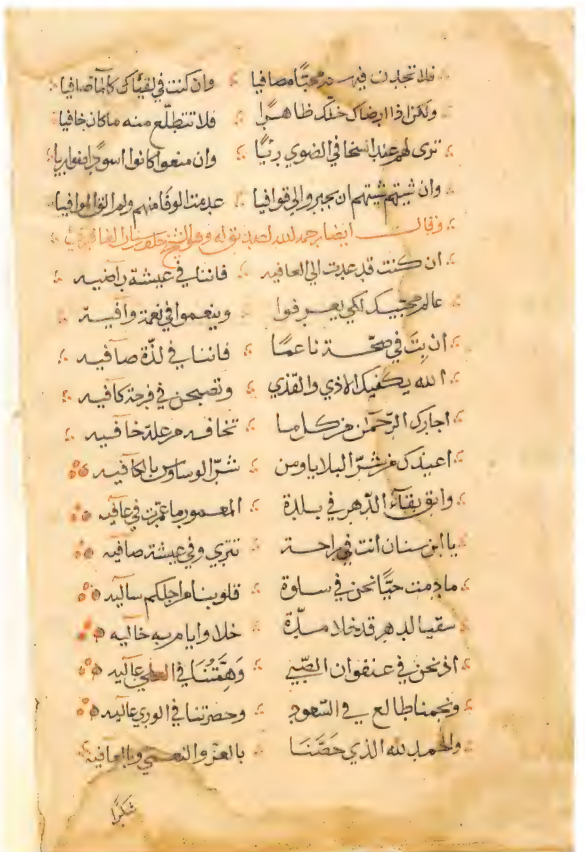 فلا تجدن فيهم محبًّا مصافيا وان كنت في لقياك كالماء صافيا
ولكن اذا ارضاك خلّك ظاهرًا فلا تتطلّع منه ما كان خافيا
ترى لهم عند السخا في الضوي ريًّا وان منعوا كانوا اسودًا
وان شيتهم شيتهم ان بجير والي قوافيا عدمت الوفا منهم ولم الق الموافيا
وقال ايضا رحمه الله لصديق له
ان كنت قد عدت الي العافيه فاننا في عيشة راضيه
عالم محبيك لكي يعرفوا وينعموا في نعمة وافيـة
ان بتَ في صحّـة ناعمًا فاننا في لذّة صافيه
الله يكفيك الاذي والقذي وتصبحن في فرحة كافيه
اجارك الرّحمن من كل ما تخافه من علة خافيه
اعيذك من شرّ البلايا ومن شرّ الوساوس بالكافيه
وابق بقاء الدّهر في بلدة المعمور ما عمّرت في عافيه
يا ابن سنان انت في راحة تتري وفي عيشة صافيه
ما دمت حيًّا نحن في سلوة قلوبنا من اجلكم ساليه
سقيا لدهر قد خلا مدّة خلا وايام به خاليه
اذ نحن في عنفوان الصّبي وَهِمَّتُنَا في العلي عاليه
ونجمنا طالع في السّعود وحضرتنا في الوري عاليه
والحمد لله الذي خَصَّنَا بالعزّ والنعمي وبالعافيه
شكرًا